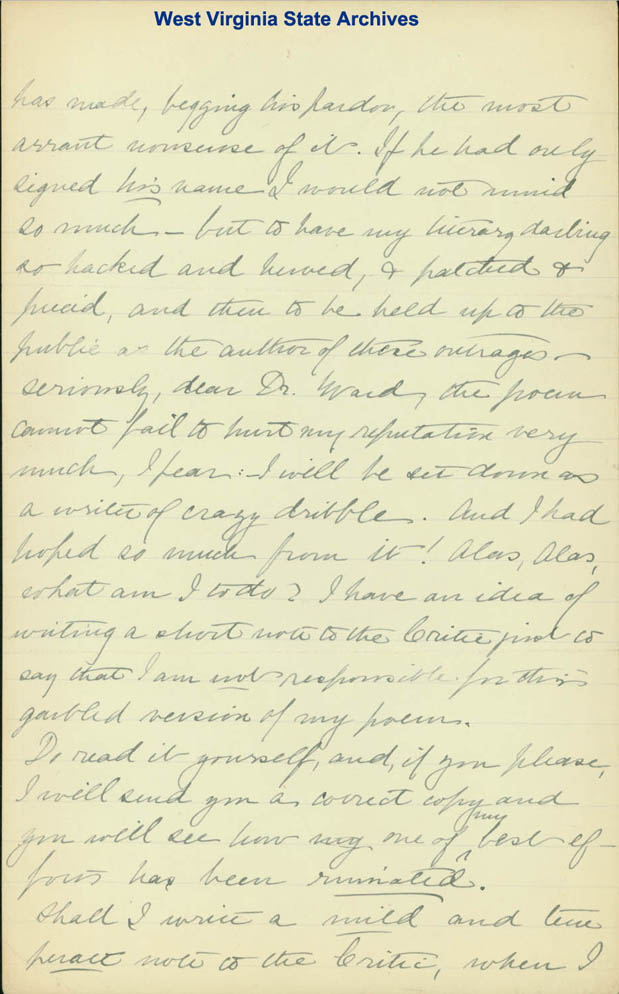 West Virginia State Archives
has made, begging his pardon, the most
arrant nonsense of it. If he had only
signed his name I would not mind
so much – but to have my literary darling
so hacked and hewed, & patched &
pieced, and then to be held up to the
public as the author of these outrages –
seriously, dear Dr. Ward, the poem
cannot fail to hurt my reputation very
much, I fear: – I will be set down as
a writer of crazy dribble. And I had
hoped so much from it! Alas, Alas,
what am I to do? I have an idea of
writing a short note to the Critic just to
say that I am not responsible for this
garbled version of my poem.
Do read it yourself, and, if you please,
I will send you a correct copy and
you will see how one of my best ef-
forts has been ruinated?
Shall I write a mild and tem
perate note to the Critic, when I